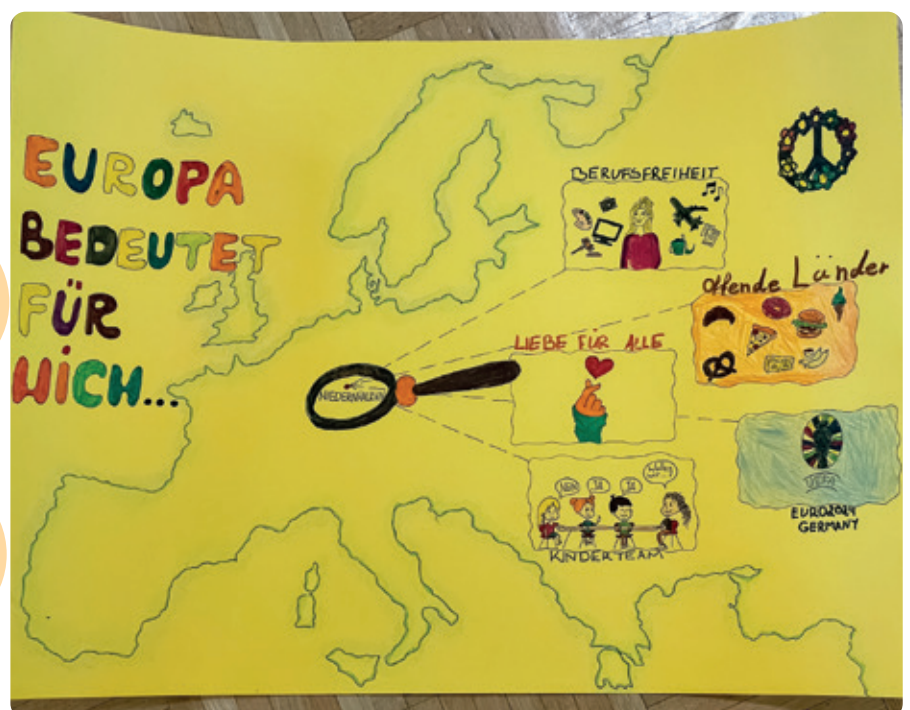 EUROPA
BEDEUTET
FÜR
MiCH...
BERUFSFREIHEIT
offende Länder
LIEBE FÜR ALLE
NEIN
JA
JA
KINDERTEAM
UEFA
EURO2024
GERMANY